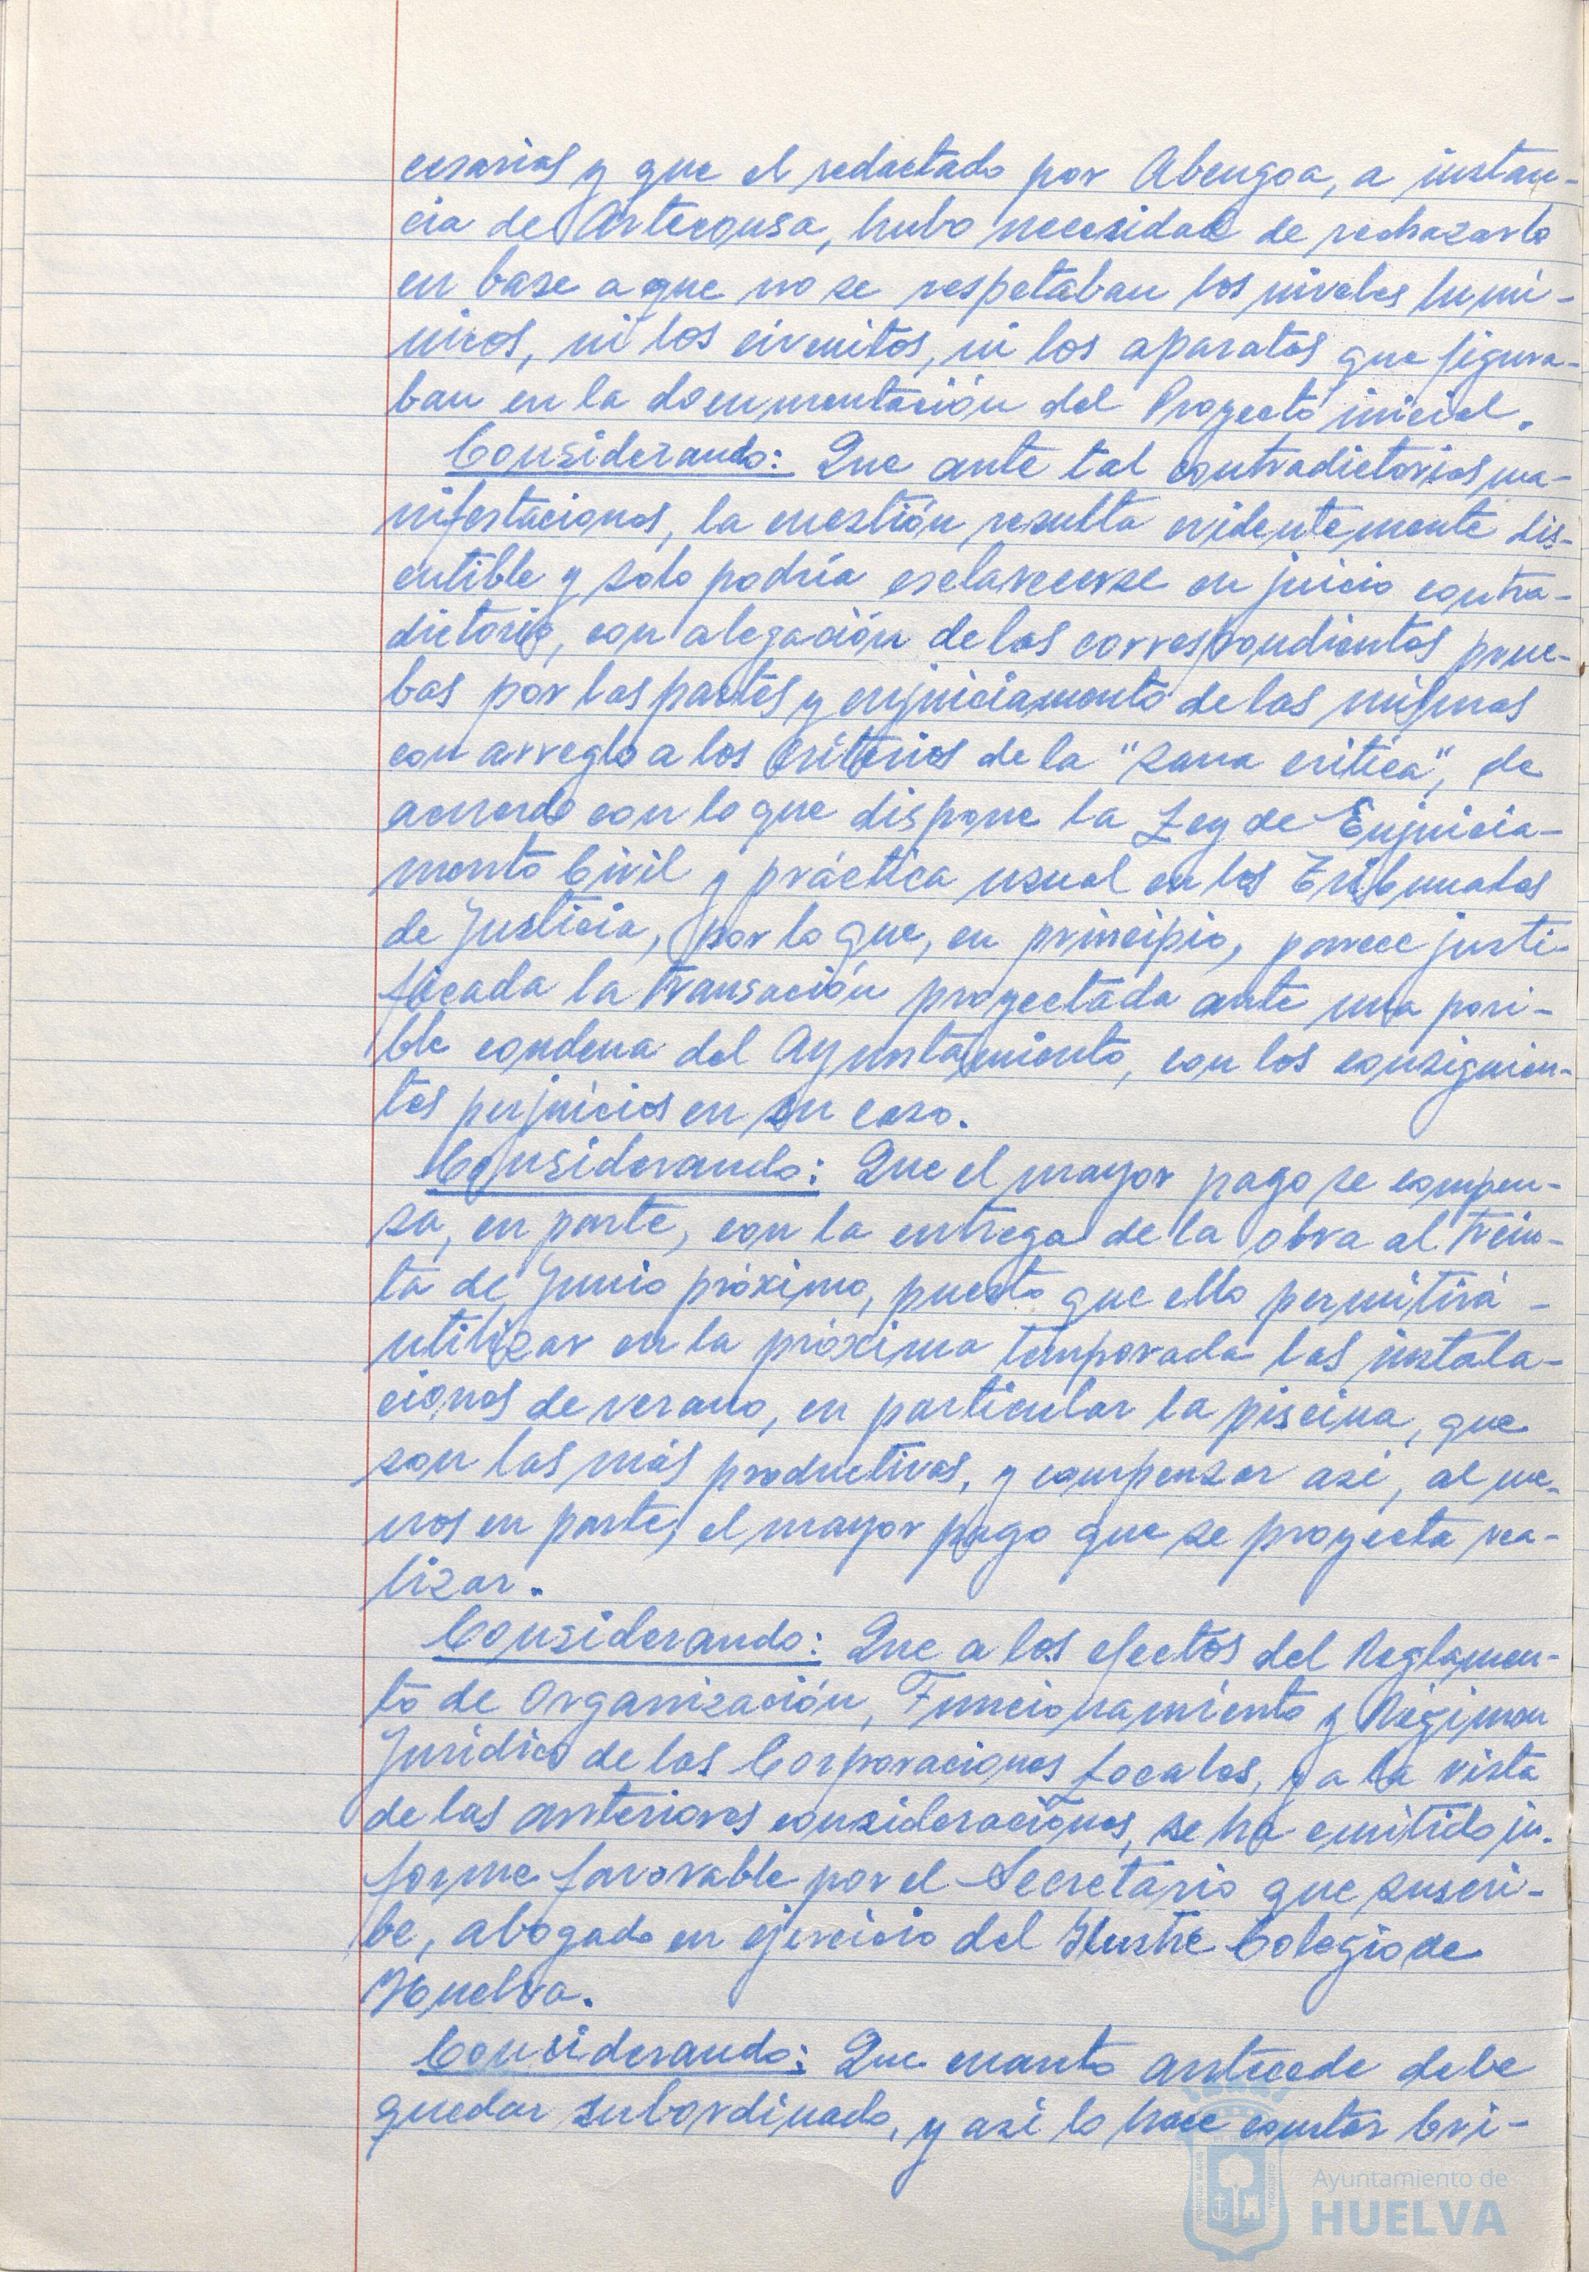 cesarias y que el redactado por Abengoa, a instan-
cia de Artecqusa, hubo necesidad de rechazarlo
en base a que no se respetaban los niveles lumí-
nicos, ni los circuitos, ni los aparatos que figura-
ban en la documentación del Proyecto inicial.
Considerando: Que ante tal contradictorias ma-
nifestaciones, la cuestión resulta evidentemente dis-
cutible y solo podría esclarecerse en juicio contra-
dictorio, con alegación de las correspondientes prue-
bas por las partes y enjuiciamiento de las mismas
con arreglo a los criterios de la "sana crítica", de
acuerdo con lo que dispone la Ley de Enjuicia-
miento Civil y práctica usual en los Tribunales
de Justicia, por lo que, en principio, parece justi-
ficada la transación proyectada ante una posi-
ble condena del Ayuntamiento, con los consiguien-
tes perjuicios en su caso.
Considerando: Que el mayor pago se compen-
sa, en parte, con la entrega de la obra al trein-
ta de Junio próximo, puesto que ello permitirá -
utilizar en la próxima temporada las instala-
ciones de verano, en particular la piscina, que
son las más productivas, y compensar así, al me-
nos en parte, el mayor pago que se proyecta rea-
lizar.
Considerando: Que a los efectos del Reglamen-
to de Organización, Funcionamiento y Régimen
Jurídico de las Corporaciones Locales, y a la vista
de las anteriores consideraciones, se ha emitido in-
forme favorable por el Secretario que suscri-
be, abogado en ejercicio del Ilustre Colegio de
Huelva.
Considerando: Que cuanto antecede debe
quedar subordinado, y así lo hace constar bri-
Ayuntamiento de
HUELVA